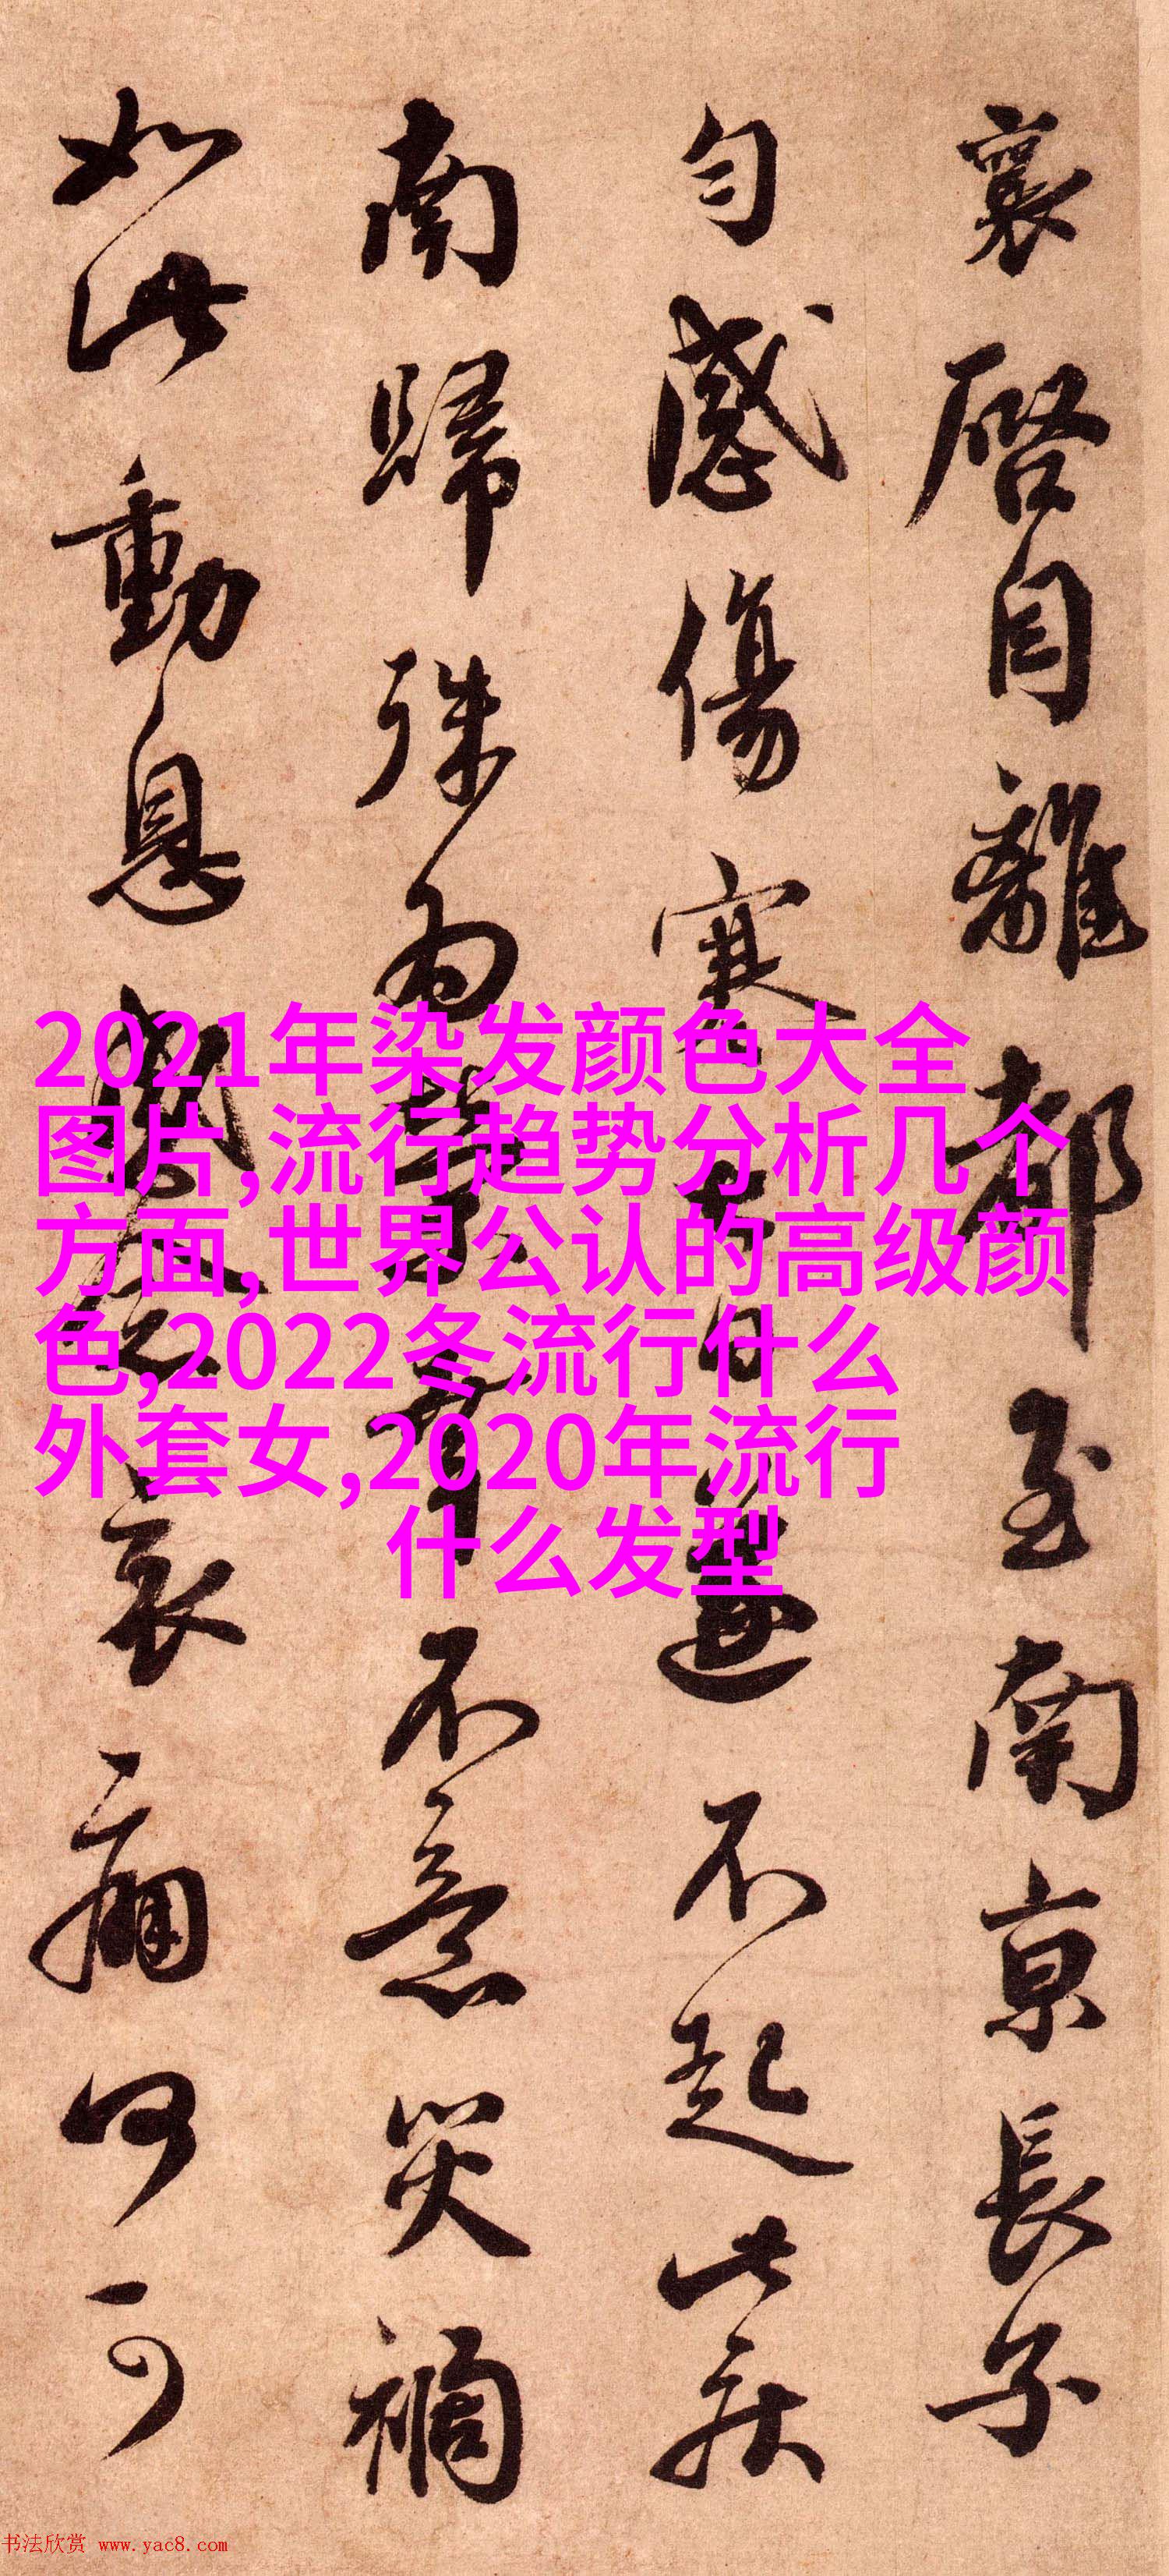 襄啓自離都至南京長子
勻感傷寒日遂不起此疾
南歸殊為不意災禍
如此動息哀痛何可
2021年染发颜色大全
图片,流行趋势分析几个
方面,世界公认的高级颜
色,2022冬流行什么
外套女,2020年流行
什么发型
书法欣赏 www.yac8.com